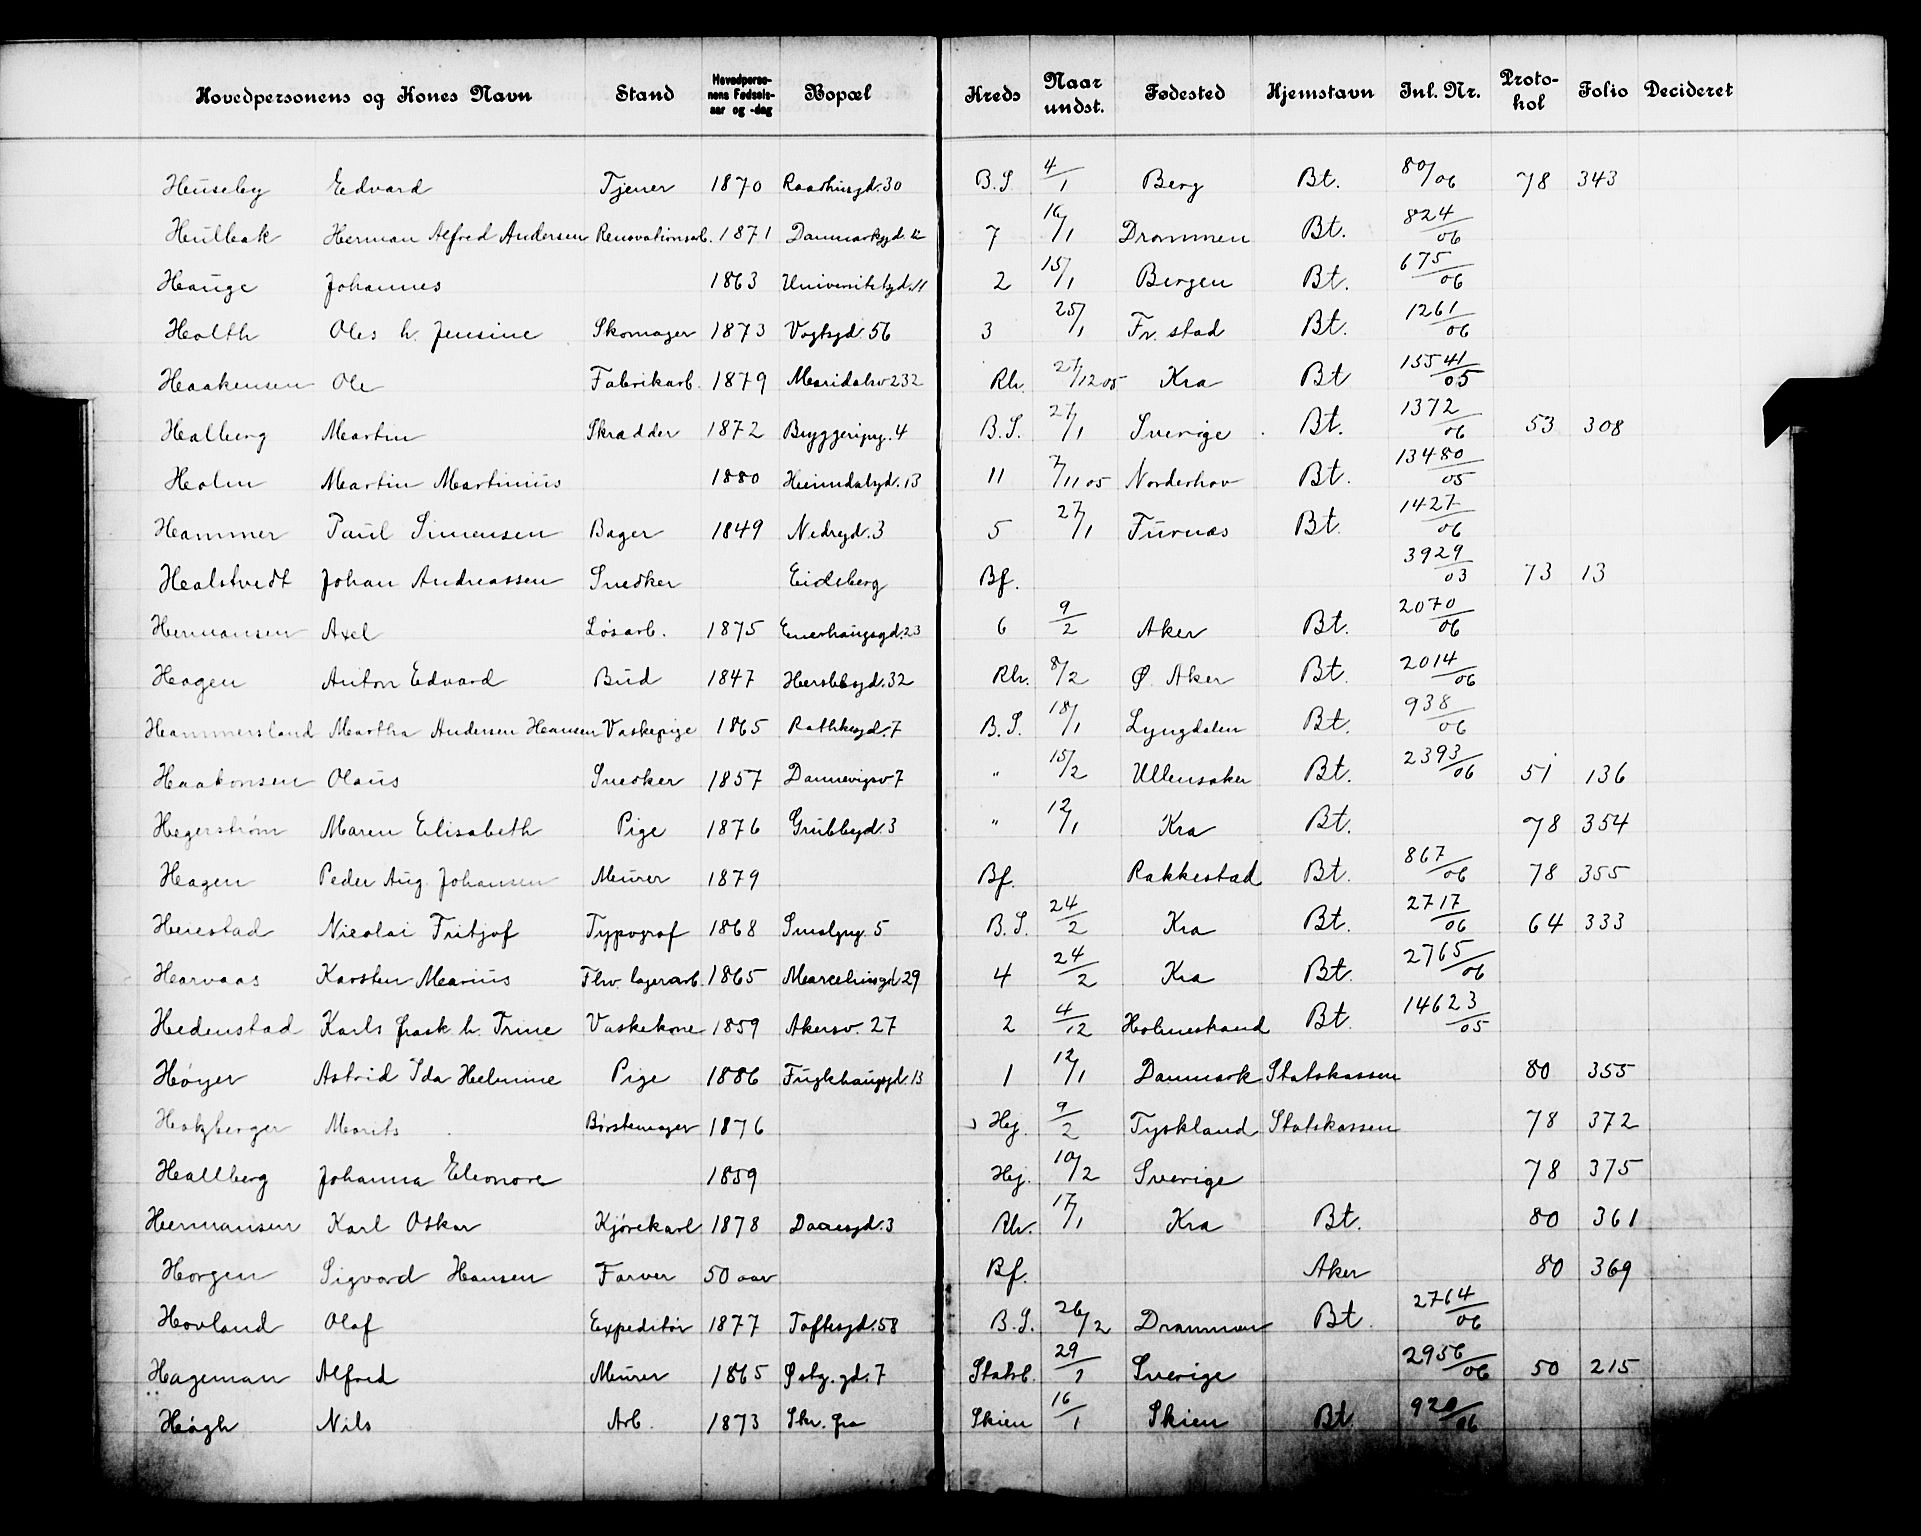 Hovedpersonens og Kones Navn Stand Hovedpersonens Fødselsaar og -dag Bopæl Kreds Naar undst. Fødested Hjemstavn Inl. Nr. Protokol Folio Decideret
Huseby Edvard Tjener 1870 Raadhusgd. 30 B.S. 4/1 Berg Bt. 80/06 78 343
Hulbak Herman Alfred Andersen Renovationsarb. 1871 Danmarksgd. 12 7 16/1 Drammen Bt. 824/06
Hauge Johannes 1863 Universitetsgd. 11 2 15/1 Bergen Bt. 675/06
Holth Oles h. Jensine Skomager 1873 Vogtsgd. 56 3 25/1 Fr. stad Bt. 1261/06
Haakensen Ole Fabrikarb. 1879 Maridalsv 232 Rh. 27/12 05 Kra Bt 15541/05
Halberg Martin Skrædder 1872 Bryggerigg. 4 B.S. 27/1 Sverige Bt. 1372/06 53 308
Holm Martin Martinius 1880 Heimdalsgd. 13 11 7/11 05 Norderhov Bt. 13480/05
Hammer Paul Simensen Bager 1849 Nedregd. 3 5 27/1 Furnæs Bt. 1427/06
Halstvedt Johan Andreassen Snedker Eidsberg Bf. 3929/03 73 13
Hermansen Axel Løsarb. 1875 Enerhaugsgd. 23 6 9/2 Aker Bt. 2070/06
Hagen Anton Edvard Bud 1847 Herslebsgd. 32 Rh. 8/2 Ø. Aker Bt. 2014/06
Hammersland Martha Andersen Hansen Vaskepige 1865 Rathkesgd. 7 B.S. 18/1 Lyngdalen Bt. 938/06
Haakonsen Olaus Snedker 1857 Dannevigsv 7 " 15/2 Ullensaker Bt. 2393/06 51 136
Hegerstrøm Maren Elisabeth Pige 1876 Grubbegd. 3 " 12/1 Kra Bt. 78 354
Hagen Peder Aug. Johansen Murer 1879 Bf. Rakkestad Bt. 867/06 78 355
Heiestad Nicolai Fritjof Typograf 1868 Smalgug. 5 B.S. 24/2 Kra Bt. 2717/06 64 333
Harvaas Karsten Marius Fhv. lagerarb. 1865 Marcelinsgd 29 4 24/2 Kra Bt. 2765/06
Hedenstad Karls frask. h. Trine Vaskekone 1859 Akersv. 27 2 4/12 Holmestrand Bt. 14623/05
Høyer Astrid Ida Helmine Pige 1886 Fuglehaugsgd. 13 1 12/1 Danmark Statskassen 80 355
Hatzberger Morits Børstemager 1876 Hej. 9/2 Tyskland Statskassen 78 372
Hallberg Johanna Eleonore 1859 Hej. 10/2 Sverige 78 375
Hermansen Karl Oskar Kjørekarl 1878 Daaesgd. 3 Rh. 17/1 Kra Bt. 80 361
Horgen Sigvard Hansen Farver 50 aar Bf. Aker 80 369
Hovland Olaf Expeditør 1877 Toftesgd. 58 B.S. 26/2 Drammen Bt. 2764/06
Hageman Alfred Murer 1865 Østg. gd. 7 Statsb. 29/1 Sverige 2956/06 50 215
Høgh Nils Arb. 1873 Skr. fra Skien 16/1 Skien Bt 920/06